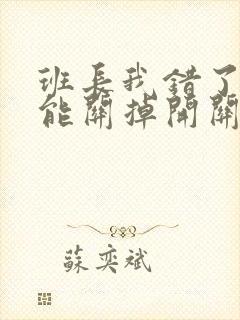 班長我錯了
能關掉開關
蘇奕斌